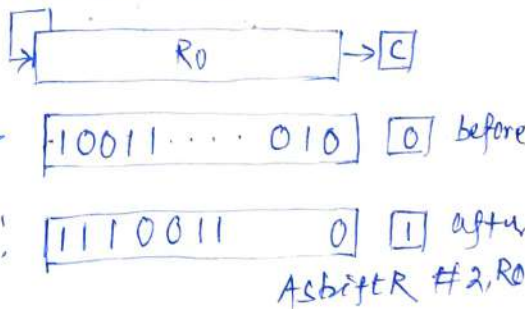 R0 C
10011 ..... 010 0 before
1110011 0 1 after
AshiftR #2, R0